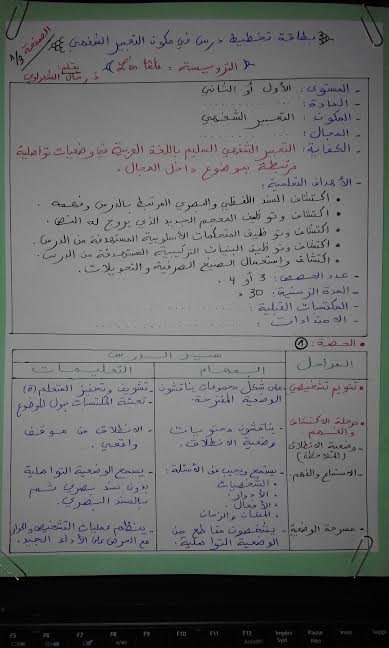 الصفحة 1/3
بطاقة تخطيط درس في مكون التعبير الشفهي
(الترويسة = L'en-tête)
بقلم:
ذ. رحال الشعراوي
- المستوى : الأول أو الثاني
- المادة :
- المكون : التعبير الشفهي
- المجال :
- الكفاية : التعبير الشفهي السليم باللغة العربية في وضعيات تواصلية
مرتبطة بموضوع داخل المجال.
- الأهداف التعلمية :
• اكتشاف السند اللفظي والبصري المرتبط بالدرس وفهمه .
• اكتشاف وتوظيف المعجم الجديد الذي يروج له النص .
• اكتشاف وتوظيف المتحكمات الأسلوبية المستهدفة من الدرس
• اكتشاف وتوظيف البنيات التركيبية المستهدفة من الدرس.
• اكتشاف واستعمال الصيغ الصرفية والتحويلات .
- عدد الحصص : 3 أو 4 .
- المدة الزمنية : 30 د
- المكتسبات القبلية :
- الامتدادات :
• الحصة : 1
المراحل
سير الدرس
المهام
التعليمات
• تقويم تشخيصي
- على شكل مجموعات يناقشون
الوضعية المقترحة.
- تشويق وتحفيز المتعلم(ة)
- تعبئة المكتسبات حول الموضوع
• مرحلة الاكتشاف
والفهم
- وضعية الانطلاق
(الملاحظة)
- يناقشون محتويات
وضعية الانطلاق.
- الانطلاق من موقف
واقعي.
- الاستماع والفهم.
- يستمع ويجيب عن الأسئلة :
• الشخصيات
• الأدوار
• الأفعال
• المكان والزمان
- يسمع الوضعية التواصلية
بدون سند بصري ثم
بالسند البصري.
- مسرحة الوضعية
- يشخصون مقاطع من
الوضعية التواصلية.
- ينظم عمليات التشخيص والحوار
مع الحرص على الأداء الجيد.
F5 F6 F7 F8 F9 F10 F11 F12 Impéc Syst Pause Attn Inser Suppr